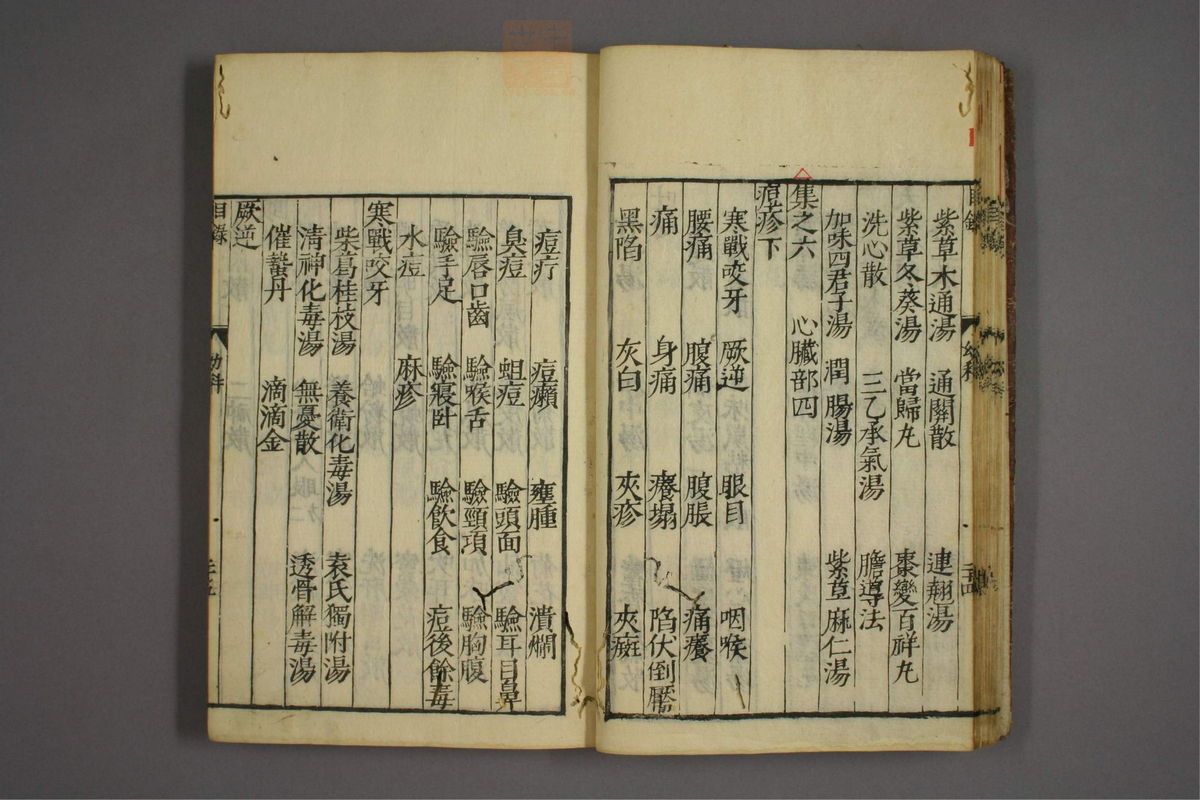 紫草木通湯 通關散 連翹湯
紫草冬葵湯 當歸丸 棗變百祥丸
洗心散 三乙承氣湯 膽導法
加味四君子湯 潤腸湯 紫草麻仁湯
集之六 心臟部四
痘疹下
寒戰咬牙 厥逆 眼目 咽喉
腰痛 腹痛 腹脹 痛癢
痛 身痛 癢塌 陷伏倒靨
黑陷 灰白 夾疹 夾癍
痘疔 痘癩 癰腫 潰爛
臭痘 蛆痘 驗頭面 驗耳目鼻
驗唇口齒 驗喉舌 驗頸項 驗胸腹
驗手足 驗寢卧 驗飲食 痘後餘毒
水痘 麻疹
寒戰咬牙
柴葛桂枝湯 養衛化毒湯 袁氏獨附湯
清神化毒湯 無憂散 透骨解毒湯
催蟄丹 滴滴金
厥逆
目錄 幼科